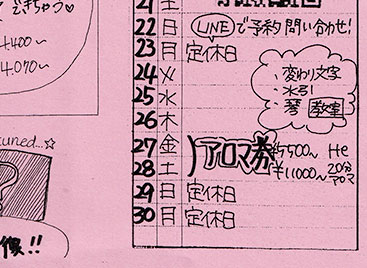 きちゃう♡
4.400〜
4.070〜
tuned...☆
?
像!!
21 土
22 日 LINEで予約問い合わせ!
23 月 定休日
24 火
25 水
26 木
27 金
28 土
29 日 定休日
30 月 定休日
・変わり文字
・水引
・琴 教室
アロマ券 ¥5500〜 He
¥11000〜 20分
アロマ